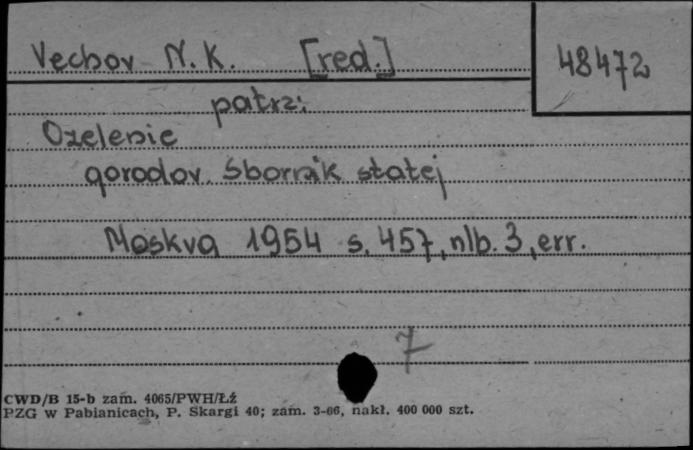 Vechov N. K. [red.]
48472
patrz:
Ozelenie
gorodov. Sbornik statej
Moskva 1954 s. 457, nlb. 3, err.
7
CWD/B 15-b zam. 4065/PWH/Łź
PZG w Pabianicach, P. Skargi 40; zam. 3-66, nakł. 400 000 szt.